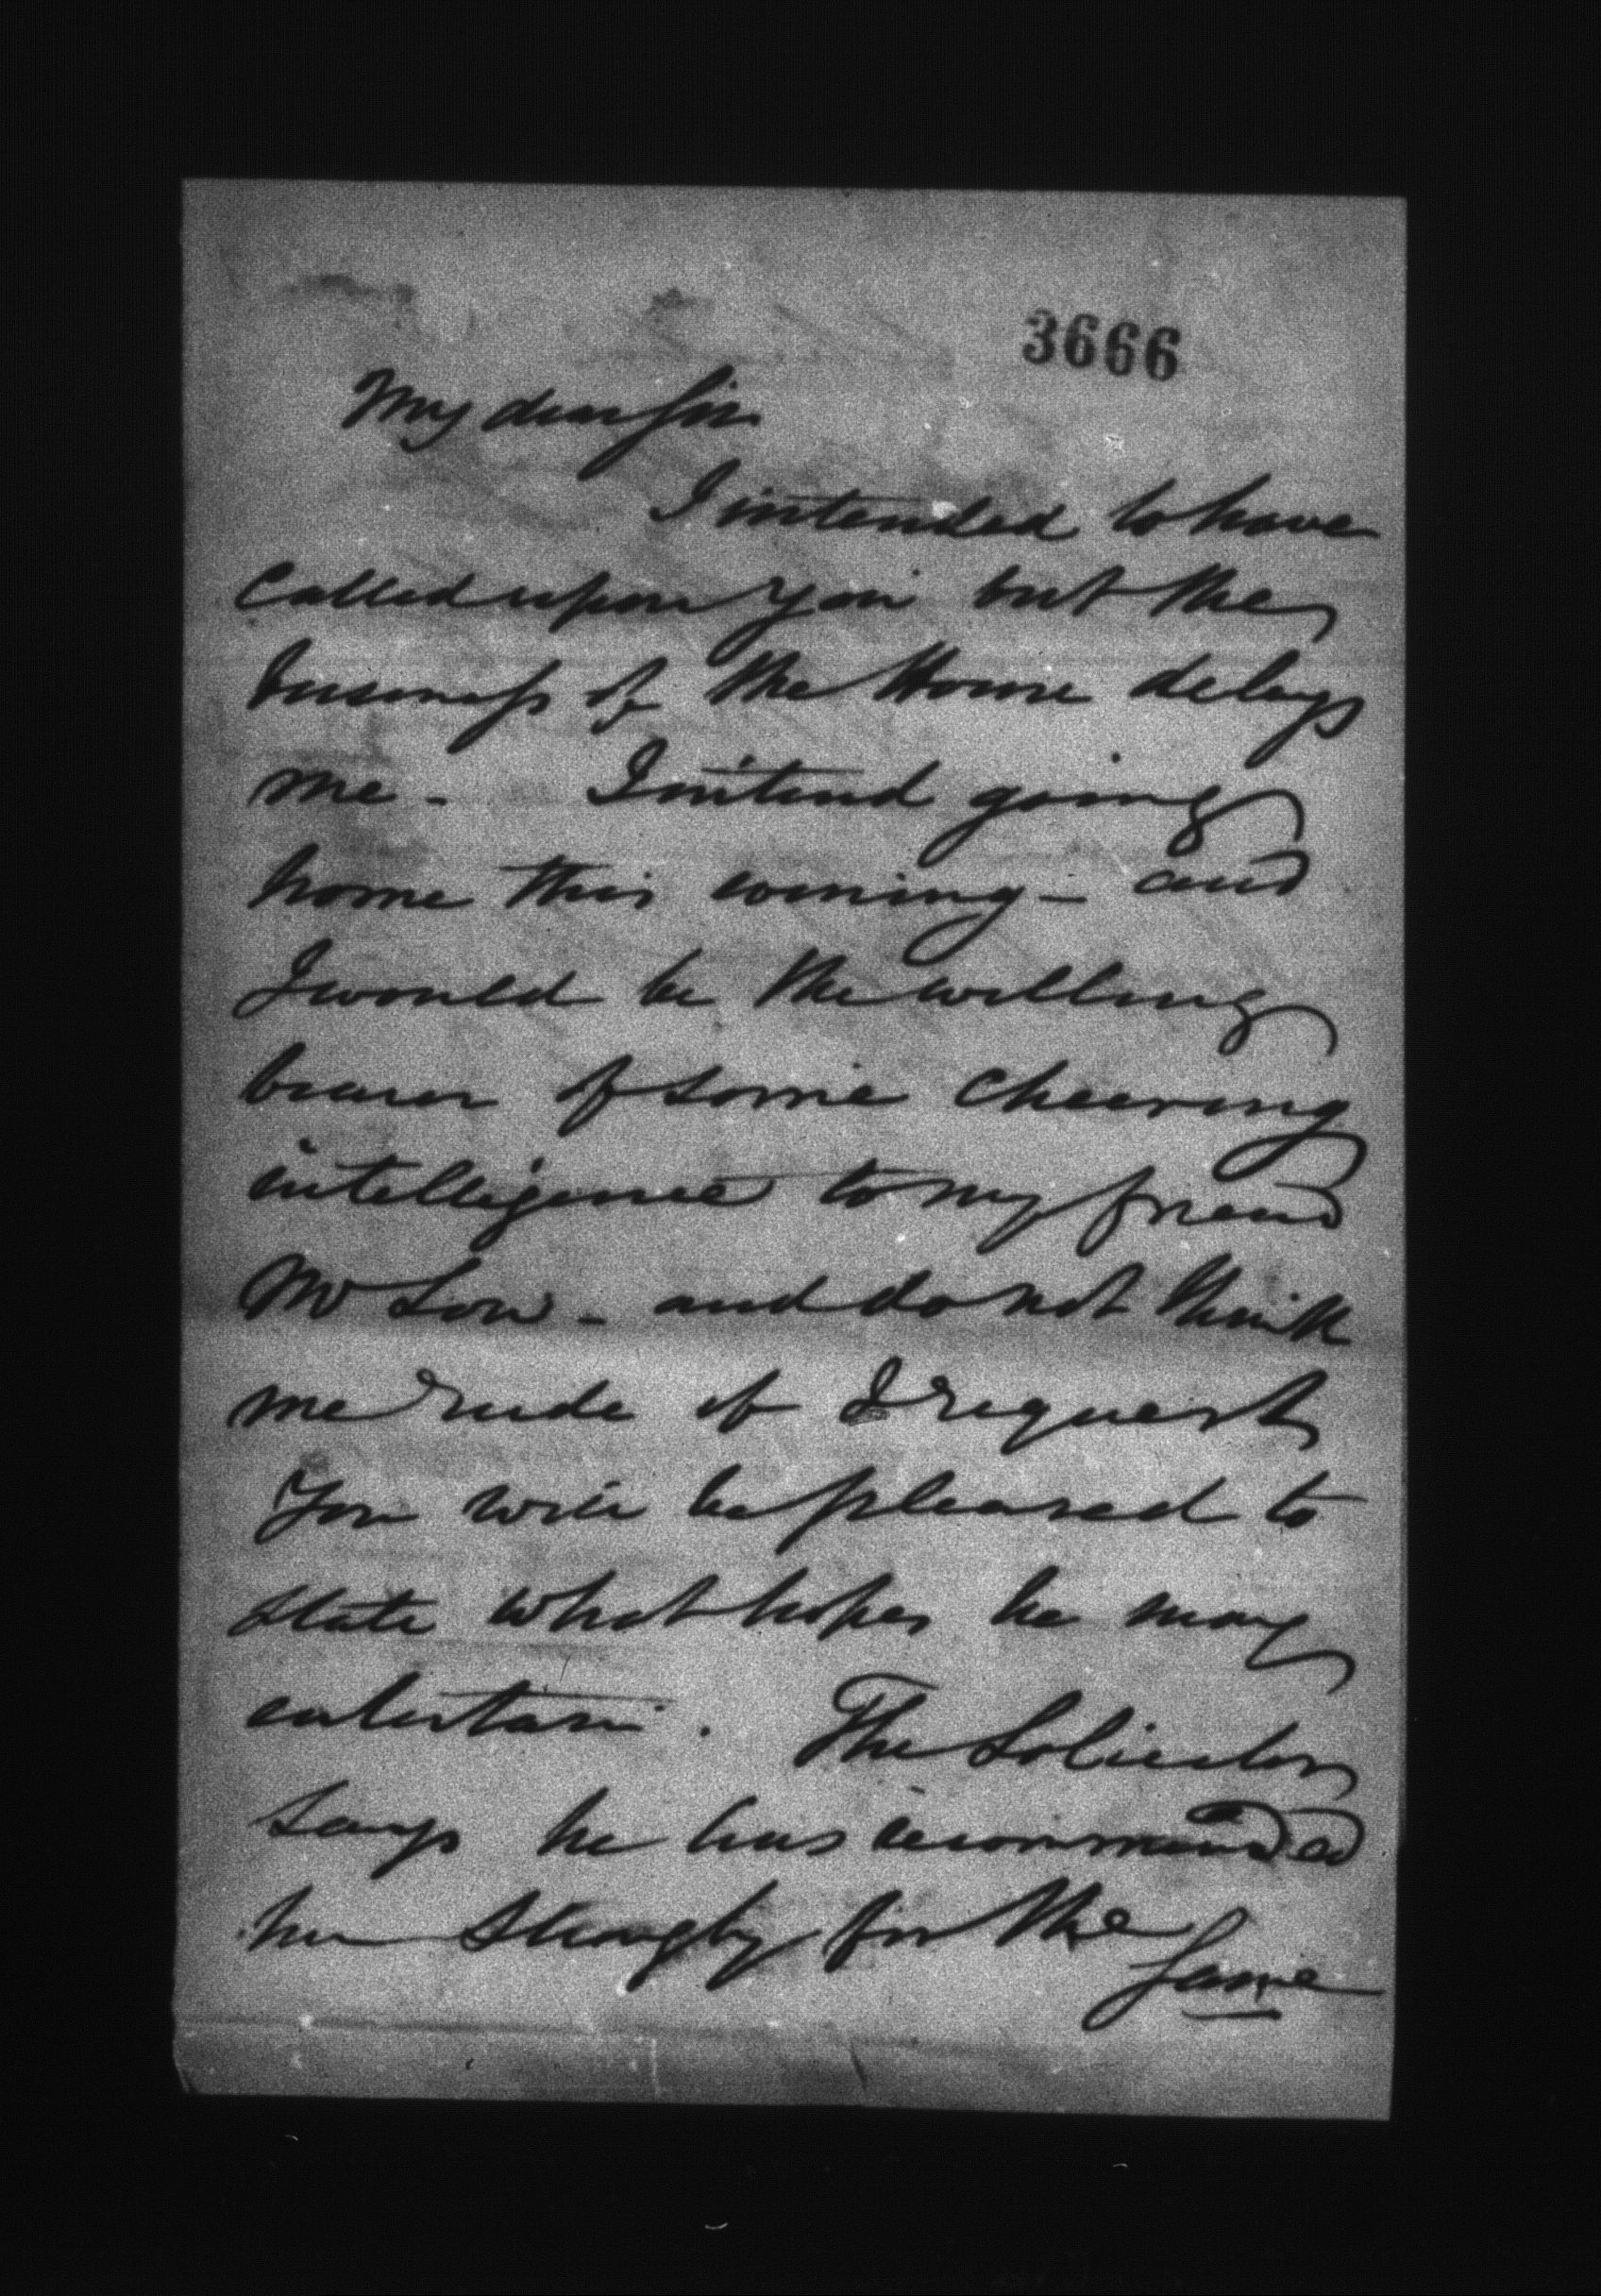 3666
My dear Sir
I intended to have
called upon you but the
business of the House delays
me - I intend going
home this evening - and
I would be the willing
bearer of some cheering
intelligence to my friend
Mr Low - and do not think
me rude if I request
you will be pleased to
state what hopes he may
entertain . The Solicitor
says he has recommended
him strongly for the
same